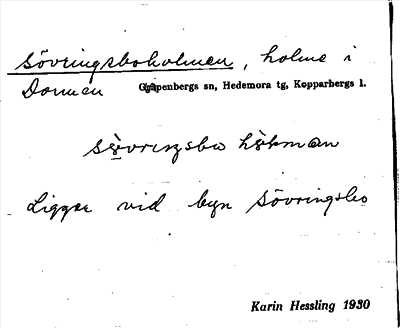 Sövringsboholmen, holme i
Dormen Garpenbergs sn, Hedemora tg, Kopparbergs l.
sövrıŋsbo hòlman
Ligger vid byn Sövringsbo
Karin Hessling 1930